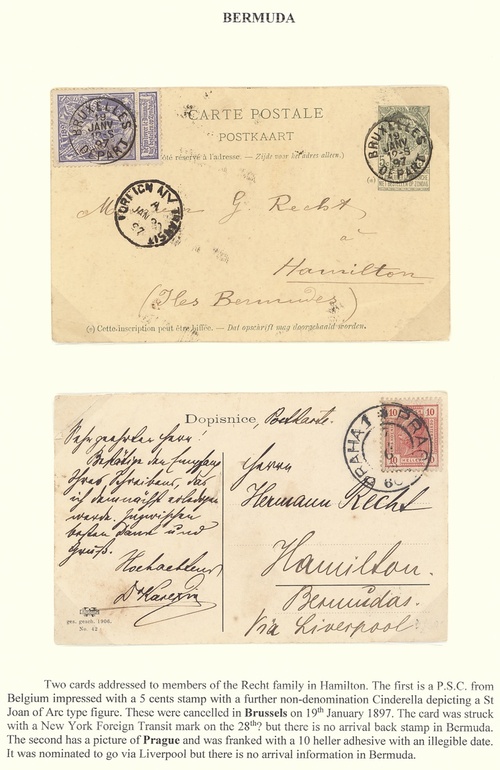 BERMUDA
CARTE POSTALE
POSTKAART
été réservé à l'adresse. - Zijde voor het adres alleen.)
BRUXELLES
19
JANV
97
DÉPART
BRUXELLES
JANV
97
DÉPART
FOREIGN N.Y. TRANSIT
A
JAN
97
G. Recht,
à
Hamilton
(Iles Bermudes)
(e) Cette inscription peut être biffée. - Dat opschrift mag doorgehaald worden.
Dopisnice, Postkarte.
PRAHA 1 * PRAG
10 10
Sehr geehrten Herrn!
Bestätige den Empfang
Ihres Schreibens, das
ich demnächst erledigen
werde. Inzwischen
besten Dank und
Gruß.
Herrn
Hermann Recht
Hamilton.
Bermudas.
Via Liverpool
ges. gesch. 1906.
No. 42
Two cards addressed to members of the Recht family in Hamilton. The first is a P.S.C. from
Belgium impressed with a 5 cents stamp with a further non-denomination Cinderella depicting a St
Joan of Arc type figure. These were cancelled in Brussels on 19th January 1897. The card was struck
with a New York Foreign Transit mark on the 28th? but there is no arrival back stamp in Bermuda.
The second has a picture of Prague and was franked with a 10 heller adhesive with an illegible date.
It was nominated to go via Liverpool but there is no arrival information in Bermuda.